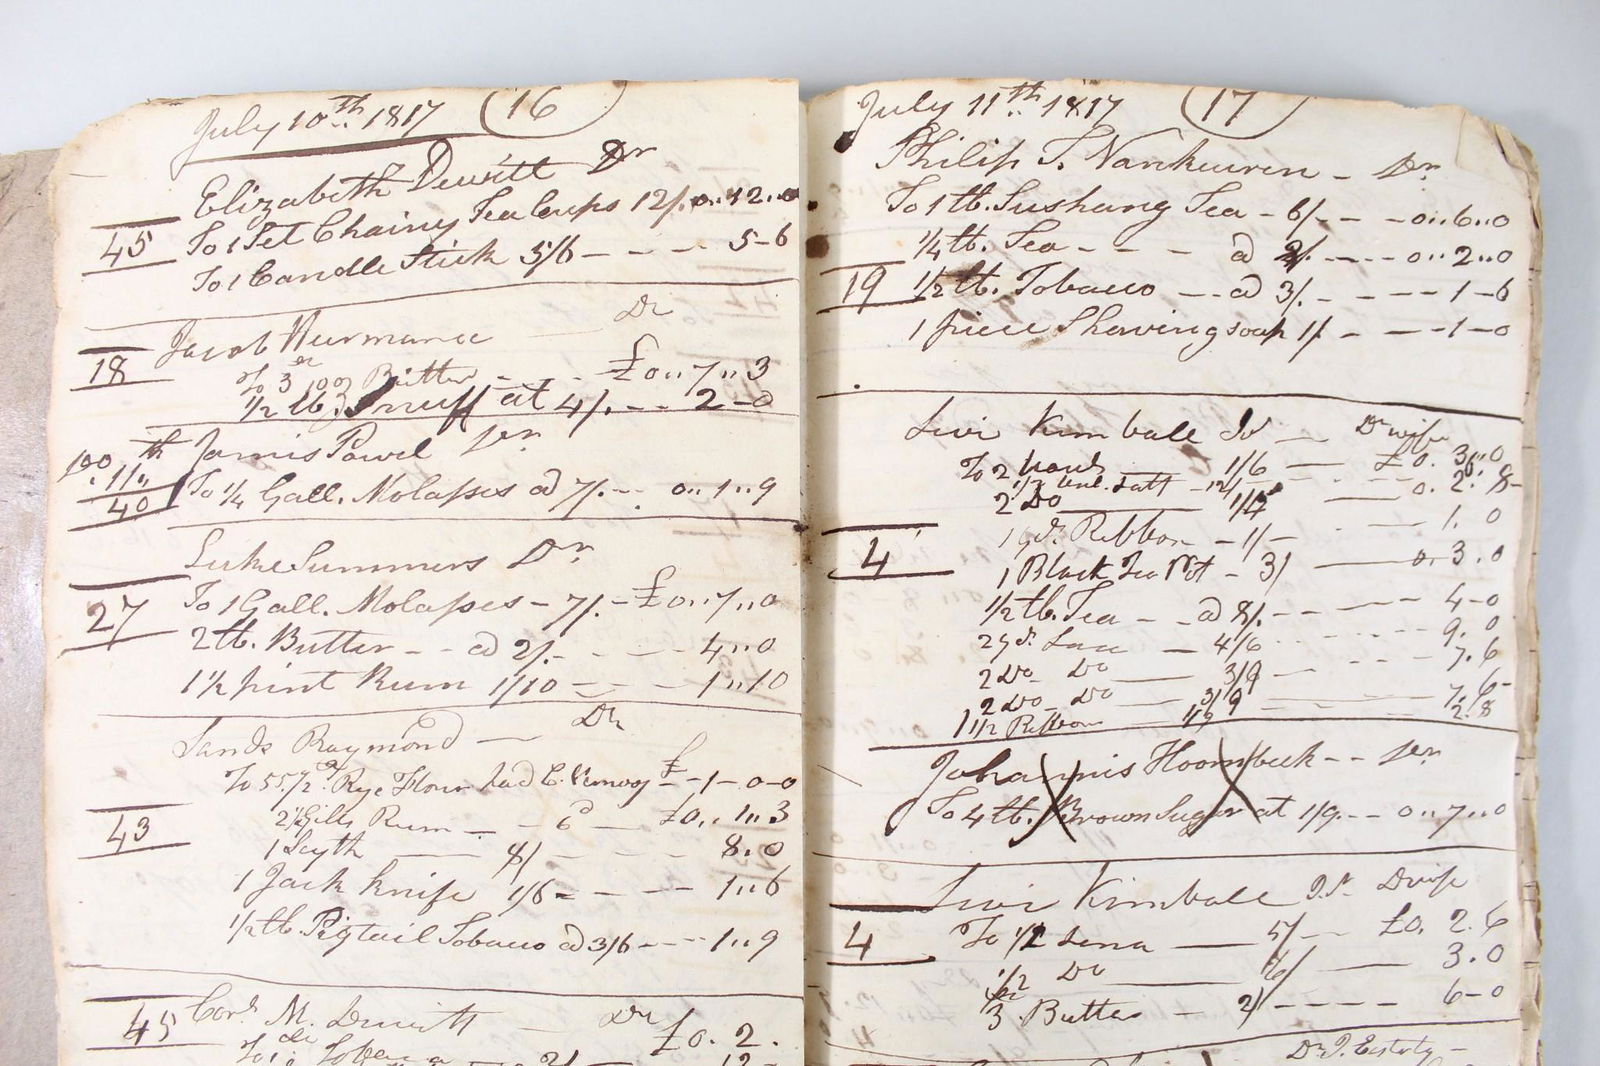 July 10th 1817 (16
Elizabeth Dewitt Dr
45 To 1 Set Chainy Tea Cups 12/. 0..12..0
To 1 Candle Stick 5/6 - - - - 5-6
Jacob Hurmance Dr
18 To 3 Butter - - - £0..7..3
1/2 lb Snuff at 4/. - - 2-0
Jamis Powel Jr
40 To 1/4 Gall. Molasses @ 7/. - - 0..1..9
Luke Summers Dr
27 To 1 Gall. Molasses - 7/. - £0..7..0
2 lb. Butter - - @ 2/. - - - 4..0
1 1/2 pint Rum 1/10 - - - 1..10
Sands Raymond - Dr
To 55 1/2 Rye Flour £ - 1 - 0 - 0
43 2 1/2 Gills Rum - - 6d - £0..1..3
1 Syth - 8/ - - - 8.0
1 Jack knife 1/6 - - - - 1..6
1/2 lb. Pigtail Tobacco @ 3/6 - - - 1..9
45 M. Dewitt - Dr £0.2.
July 11th 1817 (17
Philip T. Vankeuren - Dr
To 1 lb. Sushang Tea - 6/. - - - 0..6..0
1/4 lb. Tea - - - @ 2/. - - - - 0..2..0
19 1/2 lb. Tobacco - - @ 3/. - - - - 1-6
1 piece Shaving soap 1/. - - - 1-0
Levi Kimball Jr - Dr wife
To 2 1/6 - £0. 3..0
2 Do
1 yd. Ribbon - 1/- 1. 0
4 1 Black Tea Pot - 3/ - 0. 3. 0
1/2 lb. Tea - - @ 8/. - - - 4-0
2 yds. Lace - 4/6 9. 0
2 Do Do - 3/9 - - - 7. 6
2 Do Do - 3/9 7. 6
1 1/2 Ribbon 2. 8
Johannis Hoornbeek - - Jr
To 4 lb. Brown Sugar at 1/9. - - 0..7..0
Levi Kimball Jr Dr wife
4 To 1/2 Sena - 5/ - £0. 2. 6
1/2 Do - 6/ - 3. 0
3 Butter - 2/ - - - - 6-0